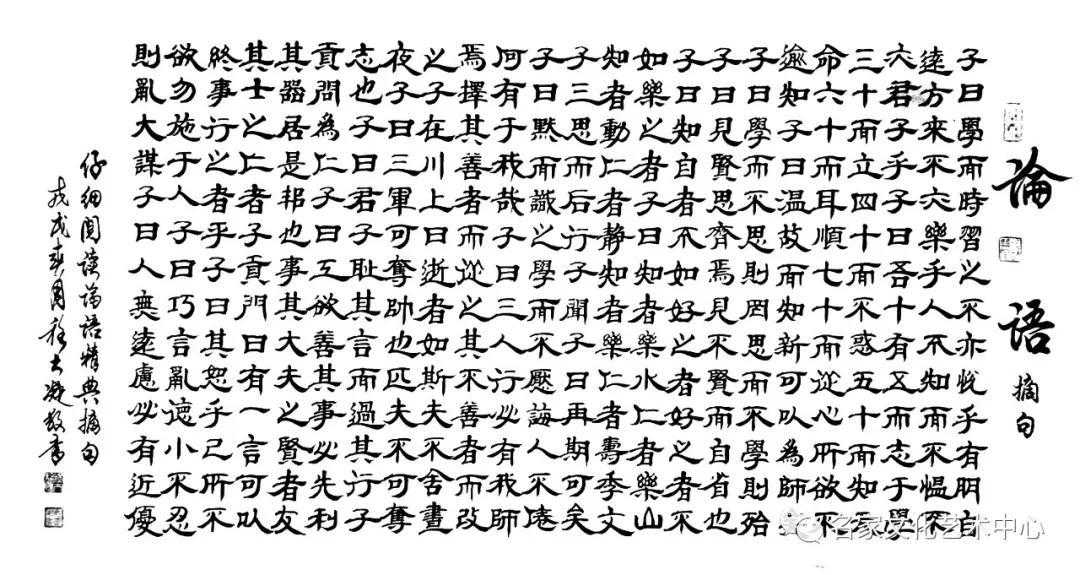 論語摘句
子曰學而時習之不亦悅乎有朋自
遠方來不亦樂乎人不知而不慍不
亦君子乎子曰吾十有五而志于學
三十而立四十而不惑五十而知天
命六十而耳順七十而從心所欲不
逾知子曰溫故而知新可以為師
子曰學而不思則罔思而不學則殆
子曰見賢思齊焉見不賢而自省也
子曰知自者不如好之者好之者不
如樂之者子曰知者樂水仁者樂山
知者動仁者靜知者樂仁者壽季文
子三思而后行子聞子曰再期可矣
子曰默而識之學而不厭誨人不倦
何有于我哉子曰三人行必有我師
焉擇其善者而從之其不善者而改
之子在川上曰逝者如斯夫不舍晝
夜子曰三軍可奪帥也匹夫不可奪
志也子曰君子恥其言而過其行子
貢問為仁子曰工欲善其事必先利
其器居是邦也事其大夫之賢者友
其士之仁者子貢門曰有一言可以
終事行之者乎子曰其恕乎己所不
欲勿施于人子曰巧言亂德小不忍
則亂大謀子曰人無遠慮必有近優
仔細閱讀論語精典摘句
戊戌春月
名家文化艺术中心